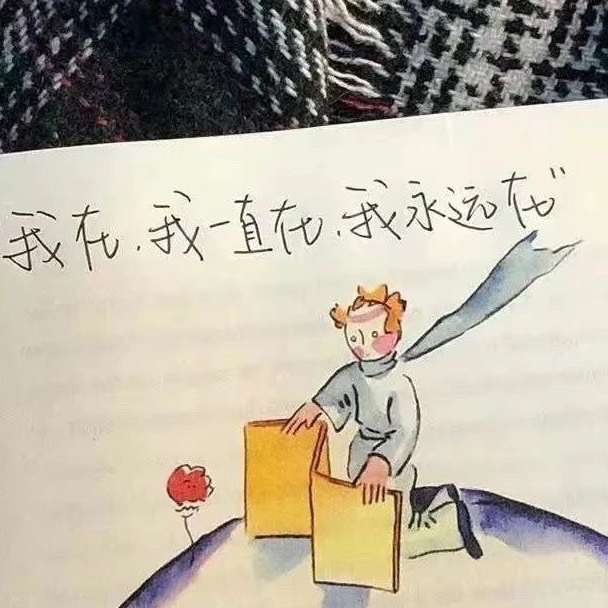 我在,我一直在,我永远在"